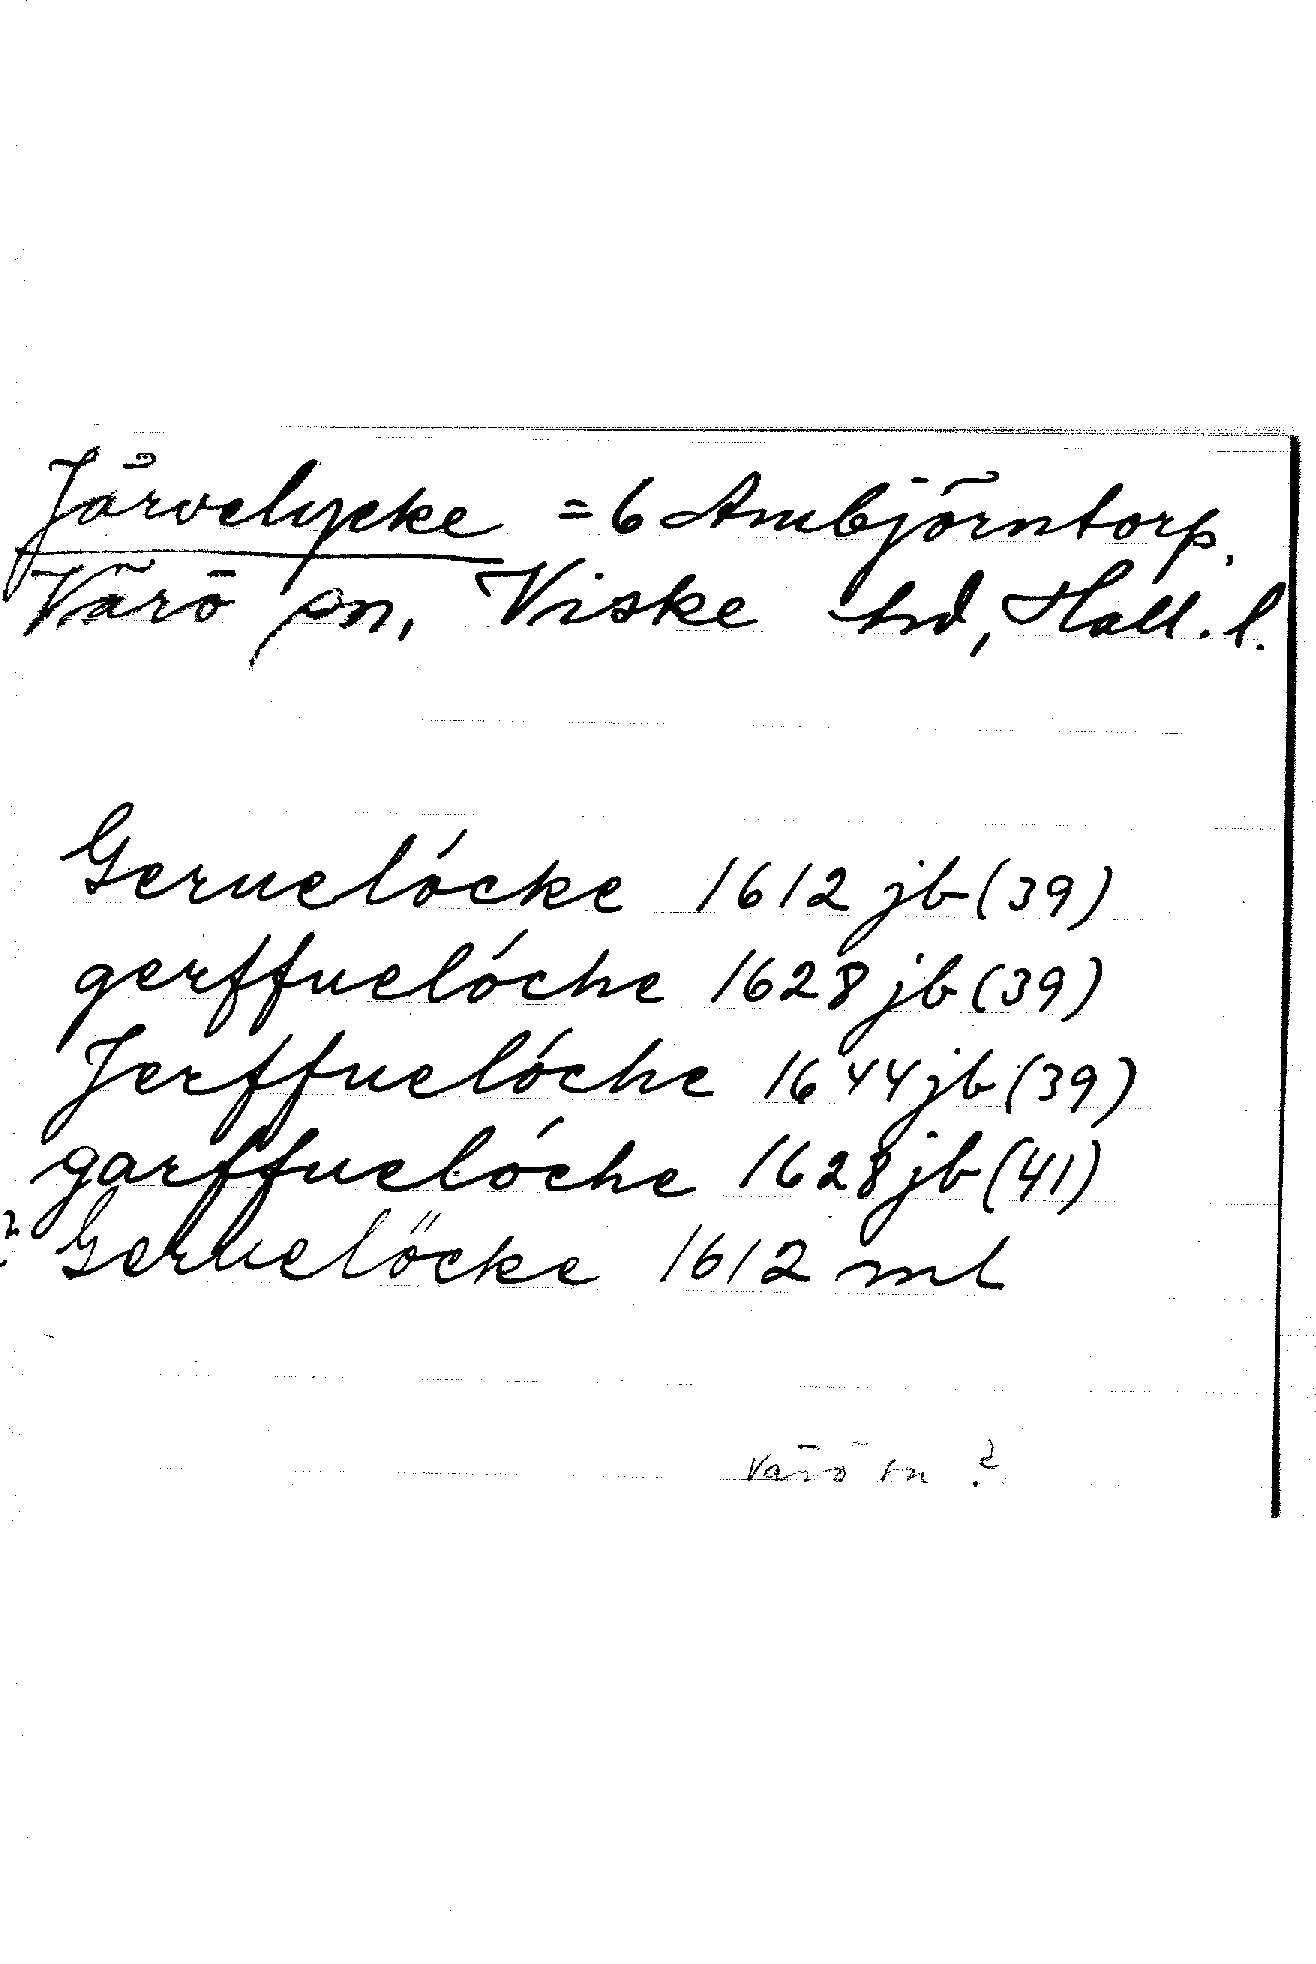 Järvelycke = 6 Ambjörntorp,
Värö sn, Viske hd, Hall. l.
Geruelócke 1612 jb (39)
gerffuelóche 1628 jb (39)
Jerffuelóche 1644 jb (39)
garffuelóche 1628 jb (41)
? Geruelöcke 1612 ml
Värö sn ?